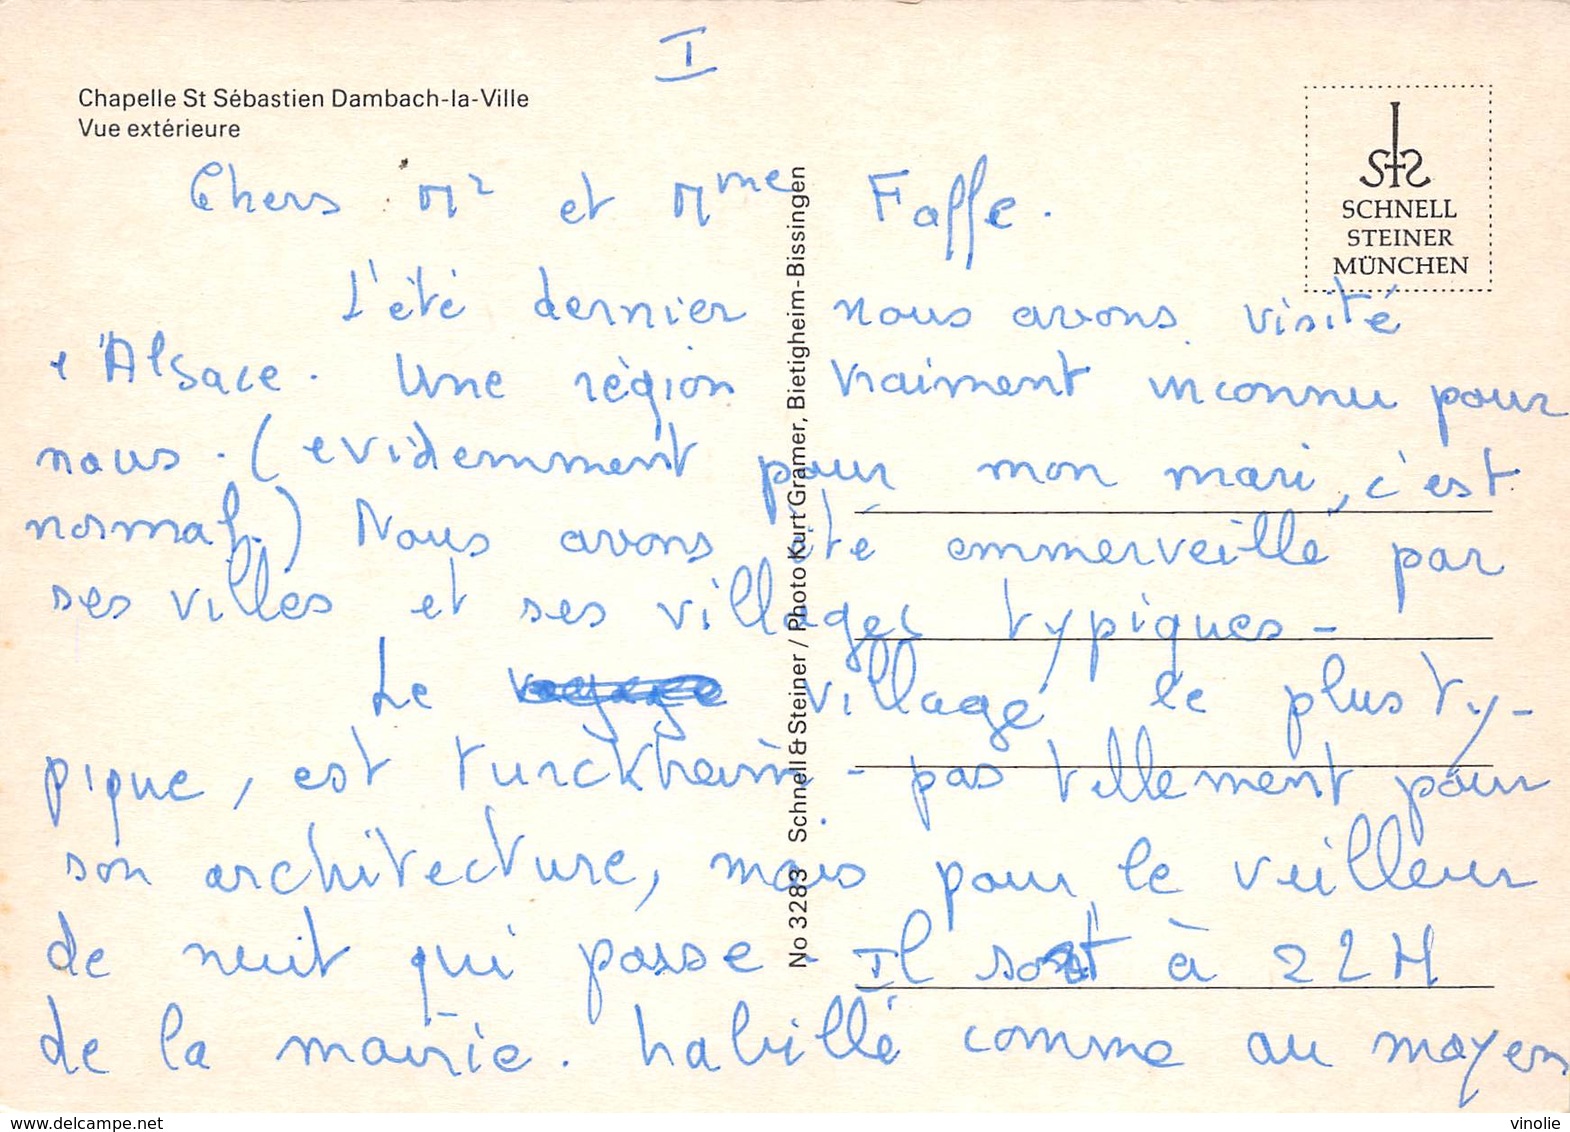 I
Chapelle St Sébastien Dambach-la-Ville
Vue extérieure
SCHNELL
STEINER
MÜNCHEN
Chers Mr et Mme Faffe.
L'été dernier nous avons visité
l'Alsace. Une règion vraiment inconnu pour
nous. (evidemment pour mon mari, c'est
normal.) Nous avons été emmerveillé par
ses villes et ses villages typiques -
Le village le plus ty-
pique, est turckheim - pas tellement pour
son architecture, mais pour le veilleur
de nuit qui passe - Il sort à 22H
de la mairie. habillé comme au moyen
No 3283 Schnell & Steiner / Photo Kurt Gramer, Bietigheim-Bissingen
vinolie